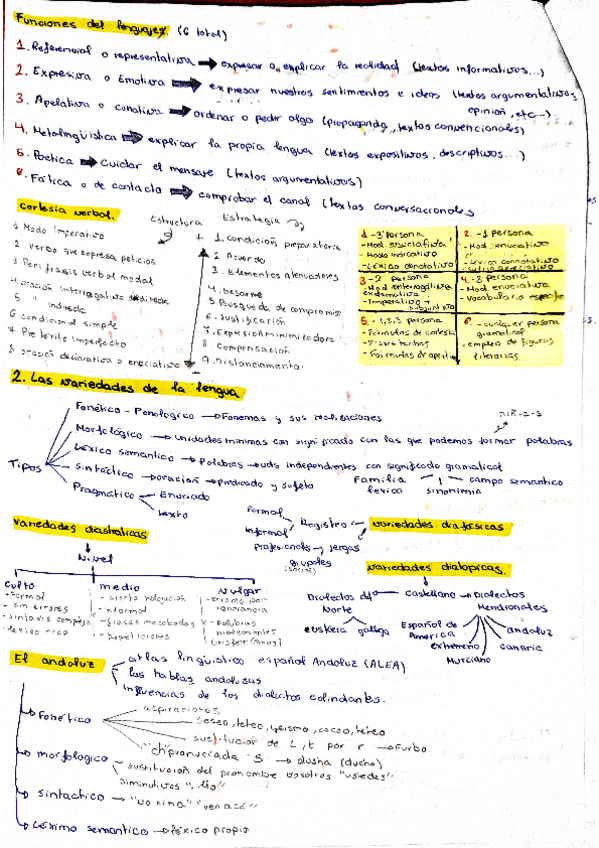 Funciones del lenguajes (6 total)
1. Referencial o representativa → expresar o explicar la realidad (textos informativos...)
2. Expresiva o Emotiva → expresar nuestros sentimientos e ideas (textos argumentativos, opinión, etc...)
3. Apelativa o conativa → ordenar o pedir algo (propaganda, textos convencionales)
4. Metalingüística → explicar la propia lengua (textos expositivos, descriptivos...)
5. Poética → cuidar el mensaje (textos argumentativos)
6. Fática o de contacto → comprobar el canal (textos conversacionales
Cortesía verbal.
Estructura
Estrategia
1 Modo Imperativo
2 Verbo que expresa petición
3 Perífrasis verbal modal
4 oración interrogativa directa
5 " indirecta
6 condicional simple
7 Pretérito imperfecto
8 oración declarativa o enunciativa
+ 1. condición preparatoria
2 Acuerdo
3. Elementos atenuadores
4. desarme
5 Búsqueda de compromiso
6. Justificación
7. Expresión minimizadora
8 compensación
9. Distanciamiento
1 - 3ª persona
- Mod. enunciativa
- Modo indicativo
- Léxico denotativo
2. - 1 persona
- Mod. enunciativa
- Léxico connotativo
3 - 2 persona
- Mod interrogativa exclamativa
- Imperativo + subjuntivo
4. - 3 persona
- Mod enunciativa
- Vocabulario específico
5 - 1,2,3 persona
- Fórmulas de cortesía
- Fórmulas de apertura
6. - cualquier persona gramatical
- empleo de figuras literarias.
2. Las variedades de la lengua
Tipos
Fonético - Fonológico → Fonemas y sus realizaciones
Morfológico → unidades mínimas con significado con las que podemos formar palabras
niñ-a-s
Léxico semántico → Palabras → uds independientes con significado gramatical
Familia léxica | sinonimia | campo semántico
Sintáctico → oración → predicado y sujeto
Pragmático → Enunciado
texto
Variedades diastráticas
Nivel
culto
- formal
- sin errores
- sintaxis compleja
- léxico rico
medio
- cierta relajación
- normal
- frases inacabadas
- repeticiones
Vulgar
- errores por ignorancia
- Palabras malsonantes
Formal
Informal
Registro
variedades diafásicas
profesionales → jergas
grupales (social)
Variedades diatópicas.
Dialectos del Norte ← castellano → Dialectos Meridionales
euskera gallego
Español de America
extremeño
Murciano
canaria
andaluz
El andaluz
atlas lingüístico español Andaluz (ALEA)
las hablas andaluzas
influencias de los dialectos colindantes.
Fonético
aspiraciones.
seseo, ceceo, yeísmo
sustitución de L, t por r → Furbo
"ch" pronunciada S → dusha (ducha)
morfológico
sustitución del pronombre vosotros "ustedes"
diminutivos "-illo"
sintáctico →
Léximo semántico → léxico propio